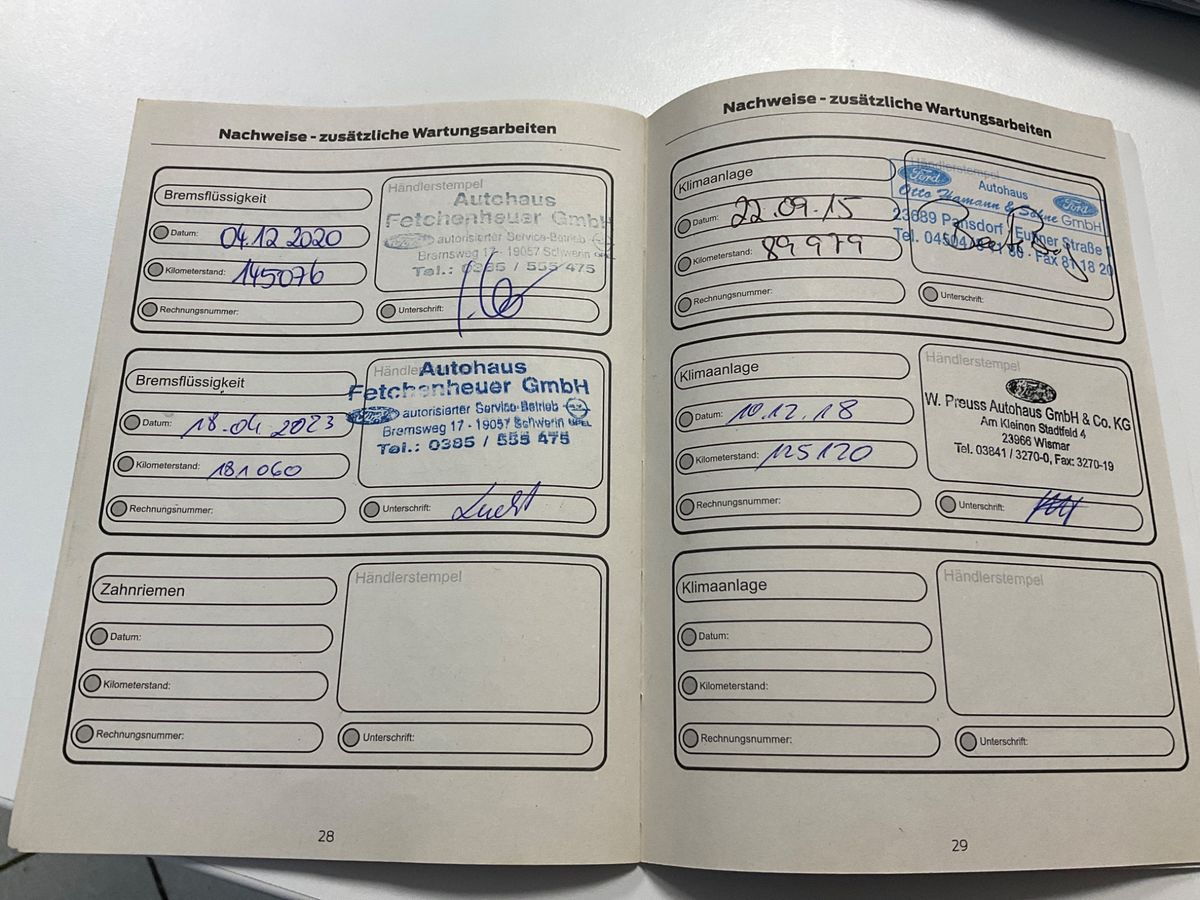 Nachweise - zusätzliche Wartungsarbeiten
Bremsflüssigkeit
Datum: 04.12 2020
Kilometerstand: 145076
Rechnungsnummer:
Händlerstempel
Autohaus
Fetchenheuer GmbH
Ford autorisierter Service-Betrieb
Bremsweg 17 - 19057 Schwerin OPEL
Tel.: 0385 / 555 475
Unterschrift:
Bremsflüssigkeit
Datum: 18.04 2023
Kilometerstand: 181060
Rechnungsnummer:
Händle
Autohaus
Fetchenheuer GmbH
Ford autorisierter Service-Betrieb
Bremsweg 17 - 19057 Schwerin OPEL
Tel.: 0385 / 555 475
Unterschrift:
Zahnriemen
Datum:
Kilometerstand:
Rechnungsnummer:
Händlerstempel
Unterschrift:
28
Nachweise - zusätzliche Wartungsarbeiten
Klimaanlage
Datum: 22.09.15
Kilometerstand: 89979
Rechnungsnummer:
Händlerstempel
Ford Autohaus Ford
Otto Hamann & Söhne GmbH
23689 Pansdorf Eutiner Straße 1
Tel. 04504 Fax 81 18 20
Unterschrift:
Klimaanlage
Datum: 10.12.18
Kilometerstand: 125120
Rechnungsnummer:
Händlerstempel
Ford
W. Preuss Autohaus GmbH & Co. KG
Am Kleinen Stadtfeld 4
23966 Wismar
Tel. 03841 / 3270-0, Fax: 3270-19
Unterschrift:
Klimaanlage
Datum:
Kilometerstand:
Rechnungsnummer:
Händlerstempel
Unterschrift:
29